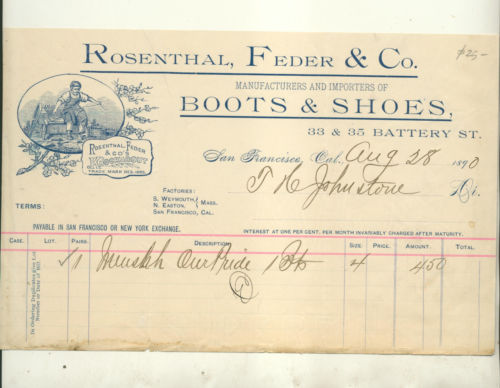 $25-
ROSENTHAL, FEDER & CO.
MANUFACTURERS AND IMPORTERS OF
BOOTS & SHOES,
33 & 35 BATTERY ST.
ROSENTHAL, FEDER
& CO'S
TRADE MARK
San Francisco, Cal. Aug 28 1890
T H Johnstone
FACTORIES:
S. WEYMOUTH,
N. EASTON,
MASS.
SAN FRANCISCO, CAL.
TERMS:
PAYABLE IN SAN FRANCISCO OR NEW YORK EXCHANGE.
INTEREST AT ONE PER CENT. PER MONTH INVARIABLY CHARGED AFTER MATURITY.
CASE. LOT. PAIRS. DESCRIPTION SIZE PRICE. AMOUNT. TOTAL.
In Ordering Duplicates give Lot
Number or Date of Bill
1 Our Pride 4 450